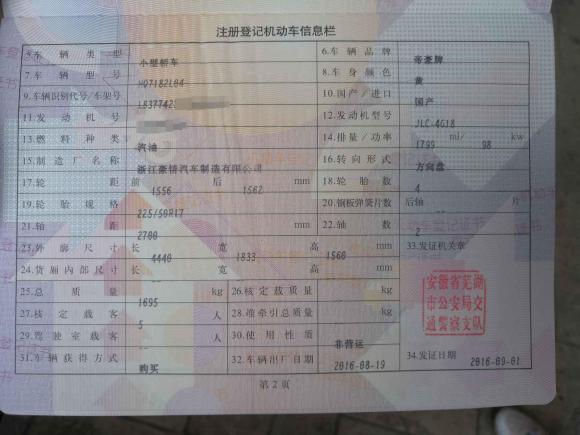 注册登记机动车信息栏
5.车辆类型 小型轿车 6.车辆品牌 帝豪牌
7.车辆型号 HQ7182LB4 8.车身颜色 黄
9.车辆识别代号/车架号 L6377423 10.国产/进口 国产
11.发动机号 12.发动机型号 JLC-4G18
13.燃料种类 汽油 14.排量/功率 1799 ml/ 98 kw
15.制造厂名称 浙江豪情汽车制造有限公司 16.转向形式 方向盘
17.轮距 前 1556 后 1562 mm 18.轮胎数 4
19.轮胎规格 225/50R17 20.钢板弹簧片数 后轴 片
21.轴距 2700 mm 22.轴数 2
23.外廓尺寸 长 4440 宽 1833 高 1560 mm 33.发证机关章
24.货厢内部尺寸 长 宽 高 mm
25.总质量 1695 kg 26.核定载质量 kg
27.核定载客 5 人 28.准牵引总质量 kg
29.驾驶室载客 人 30.使用性质 非营运
31.车辆获得方式 购买 32.车辆出厂日期 2016-08-19 34.发证日期 2016-09-01
安徽省芜湖
市公安局交
通警察支队
第2页